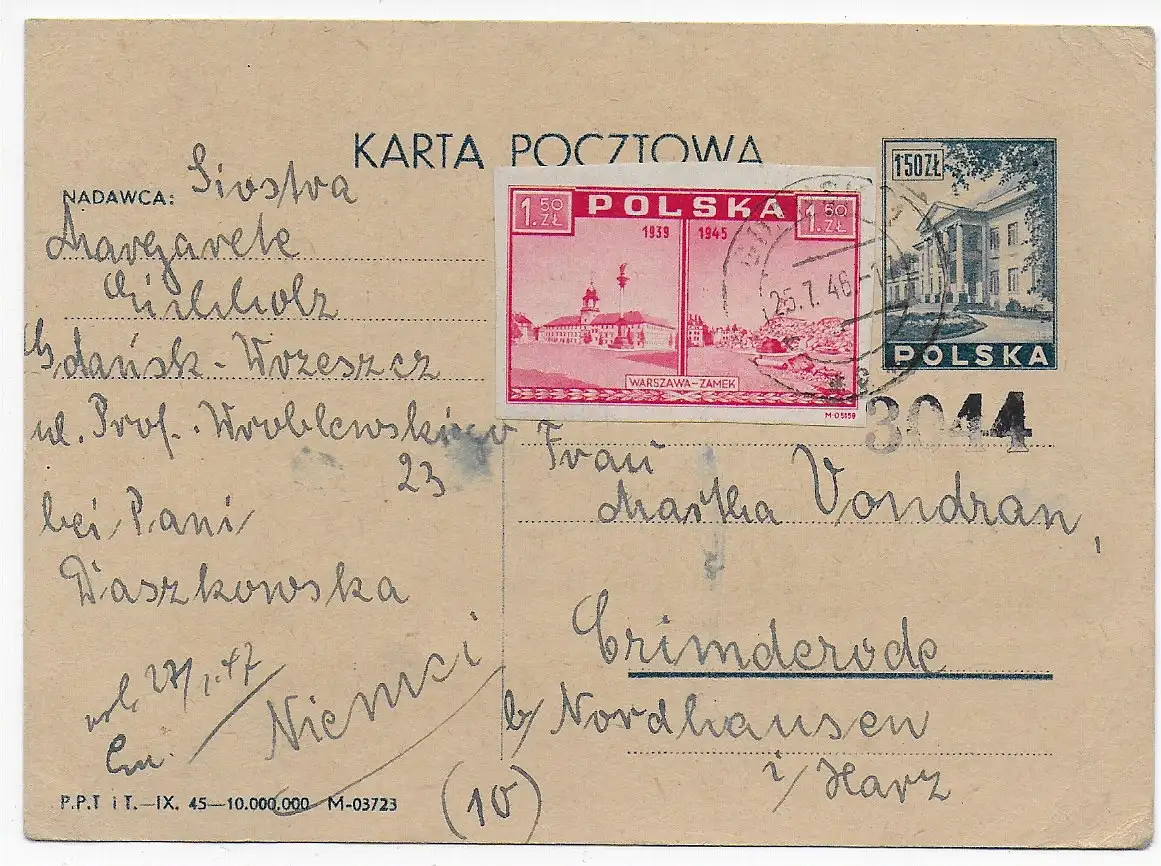 KARTA POCZTOWA
150ZŁ
POLSKA
NADAWCA: Siostra
Margarete
Gdańsk-Wrzeszcz
ul. Prof. Wroblewskiego
23
bei Pani
Daszkowska
1.50 ZŁ
POLSKA
1.50 ZŁ
1939 1945
WARSZAWA-ZAMEK
M-05159
25.7.46
3044
Frau
Martha Vondran,
Crimderode
b/ Nordhausen
i/ Harz
(10)
Niemci
27/1.47
P.P.T i T.—IX. 45—10.000.000 M-03723